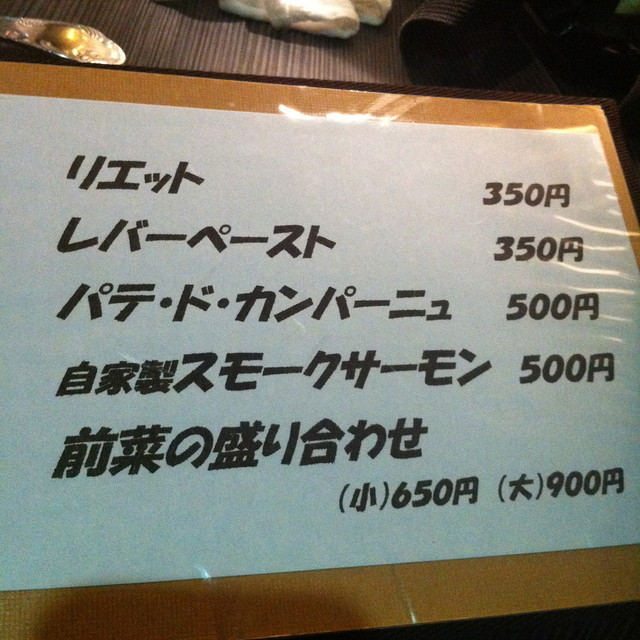 リエット 350円
レバーペースト 350円
パテ・ド・カンパーニュ 500円
自家製スモークサーモン 500円
前菜の盛り合わせ
(小)650円 (大)900円